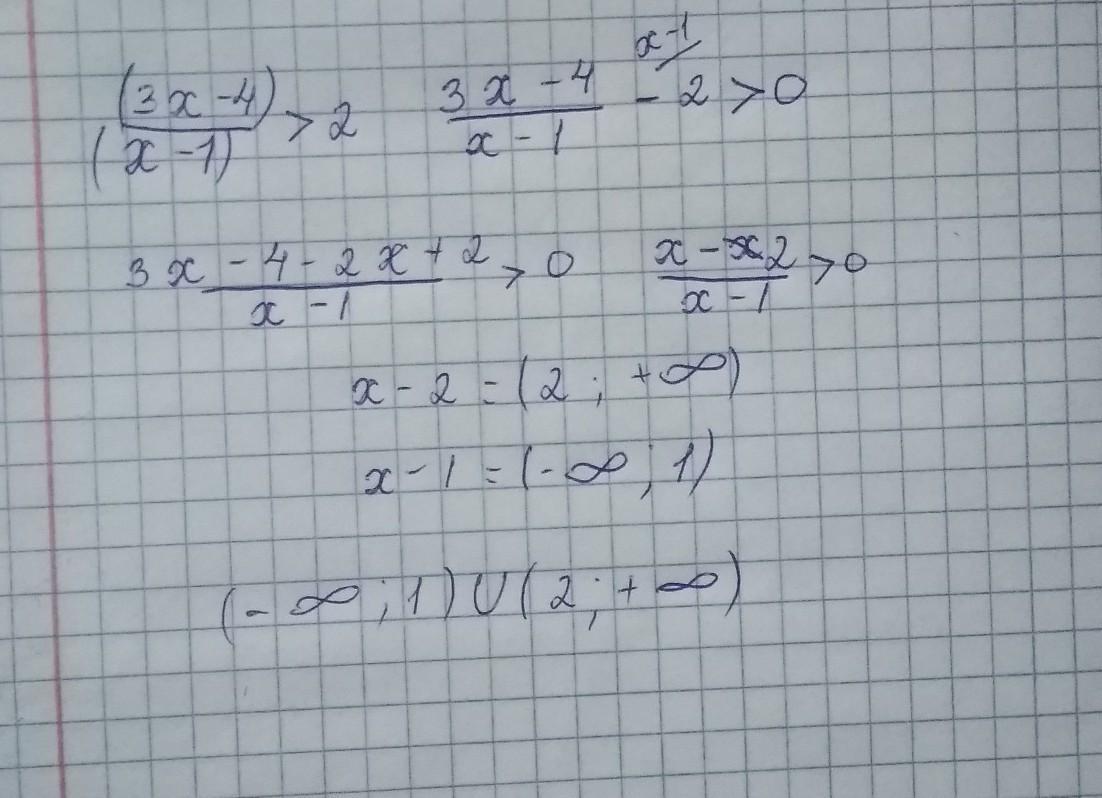 (3x-4)/(x-1) > 2   (3x-4)/(x-1) - 2 (x-1) > 0
(3x-4-2x+2)/(x-1) > 0   (x-2)/(x-1) > 0
x-2 = (2; +∞)
x-1 = (-∞; 1)
(-∞; 1) ∪ (2; +∞)